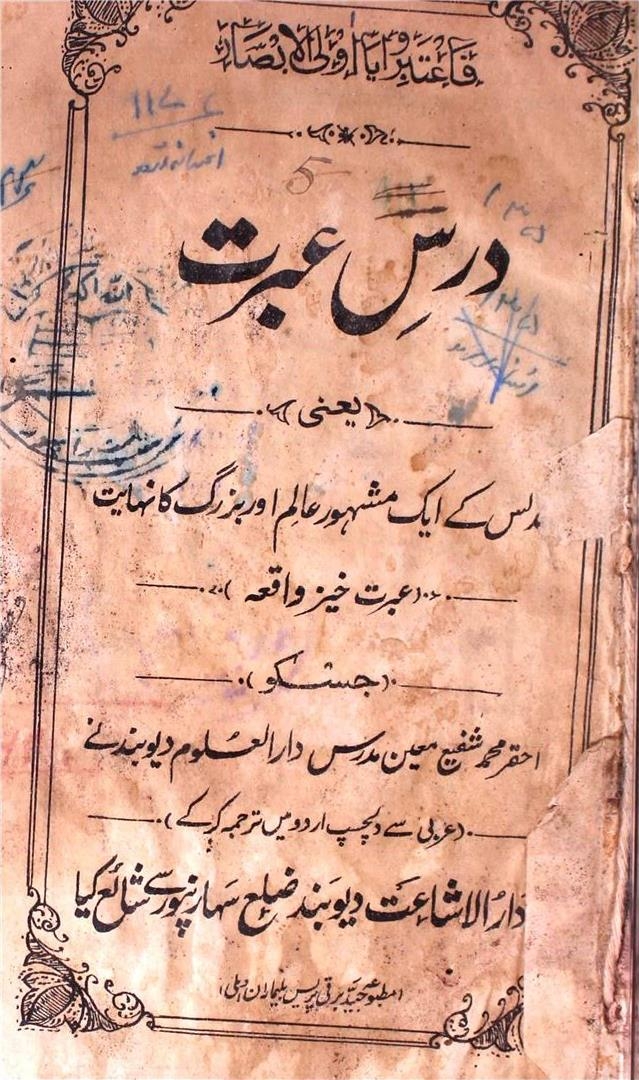 فَاعْتَبِرُوا يَا أُولِي الْأَبْصَار
۱۱۷۶
5
درسِ عبرت
یعنی
دلس کے ایک مشہور عالِم اور بزرگ کا نہایت
(عبرت خیز واقعہ)
(جسکو)
احقر محمد شفیع معین مدرس دار العلوم دیوبند نے
(عربی سے دلچسپ اردو میں ترجمہ کر کے)
دارُ الاشاعت دیوبند ضلع سہارنپور سے شائع کیا
(مطبوعہ جید برقی پریس بلیماران دہلی)